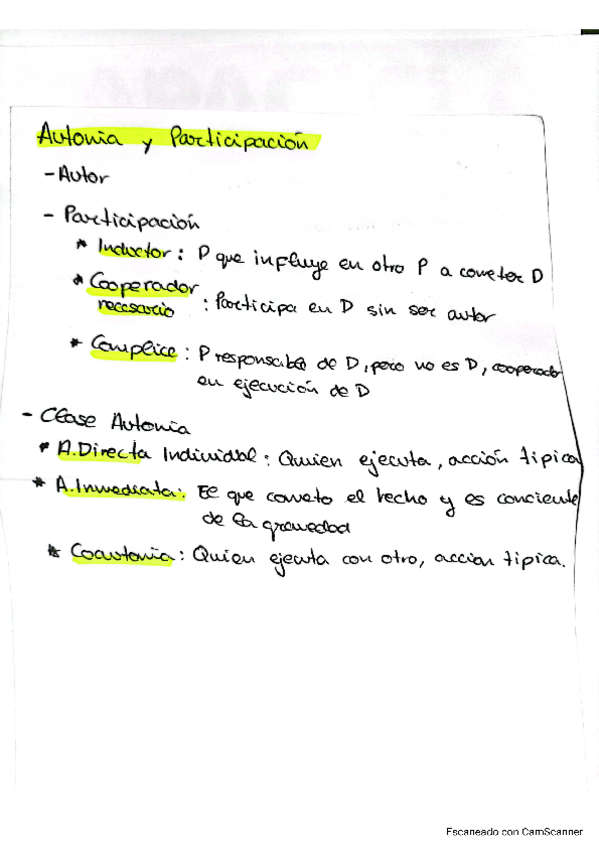 Autoria y Participación
- Autor
- Participación
* Inductor : D que influye en otro P a cometer D
* Cooperador
necesario : Participa en D sin ser autor
* Complice : P responsable de D, pero no es D, cooperado
en ejecución de D
- Clase Autoria
* A.Directa Individual : Quien ejecuta, acción tipica
* A.Inmediata : El que cometo el hecho y es conciente
de la gravedad
* Coautoria : Quien ejecuta con otro, accion tipica.
Escaneado con CamScanner